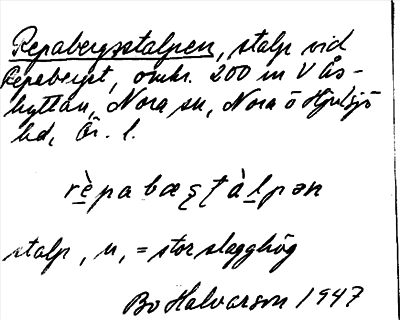 Repabergsstalpen, stalp vid
Repaberget, omkr. 200 m V Ås-
hyttan, Nora sn, Nora o Hjulsjö
hd, Ör. l.
rèpabæştàlpən
stalp, n, = stor slagghög
Bo Halvarson 1947